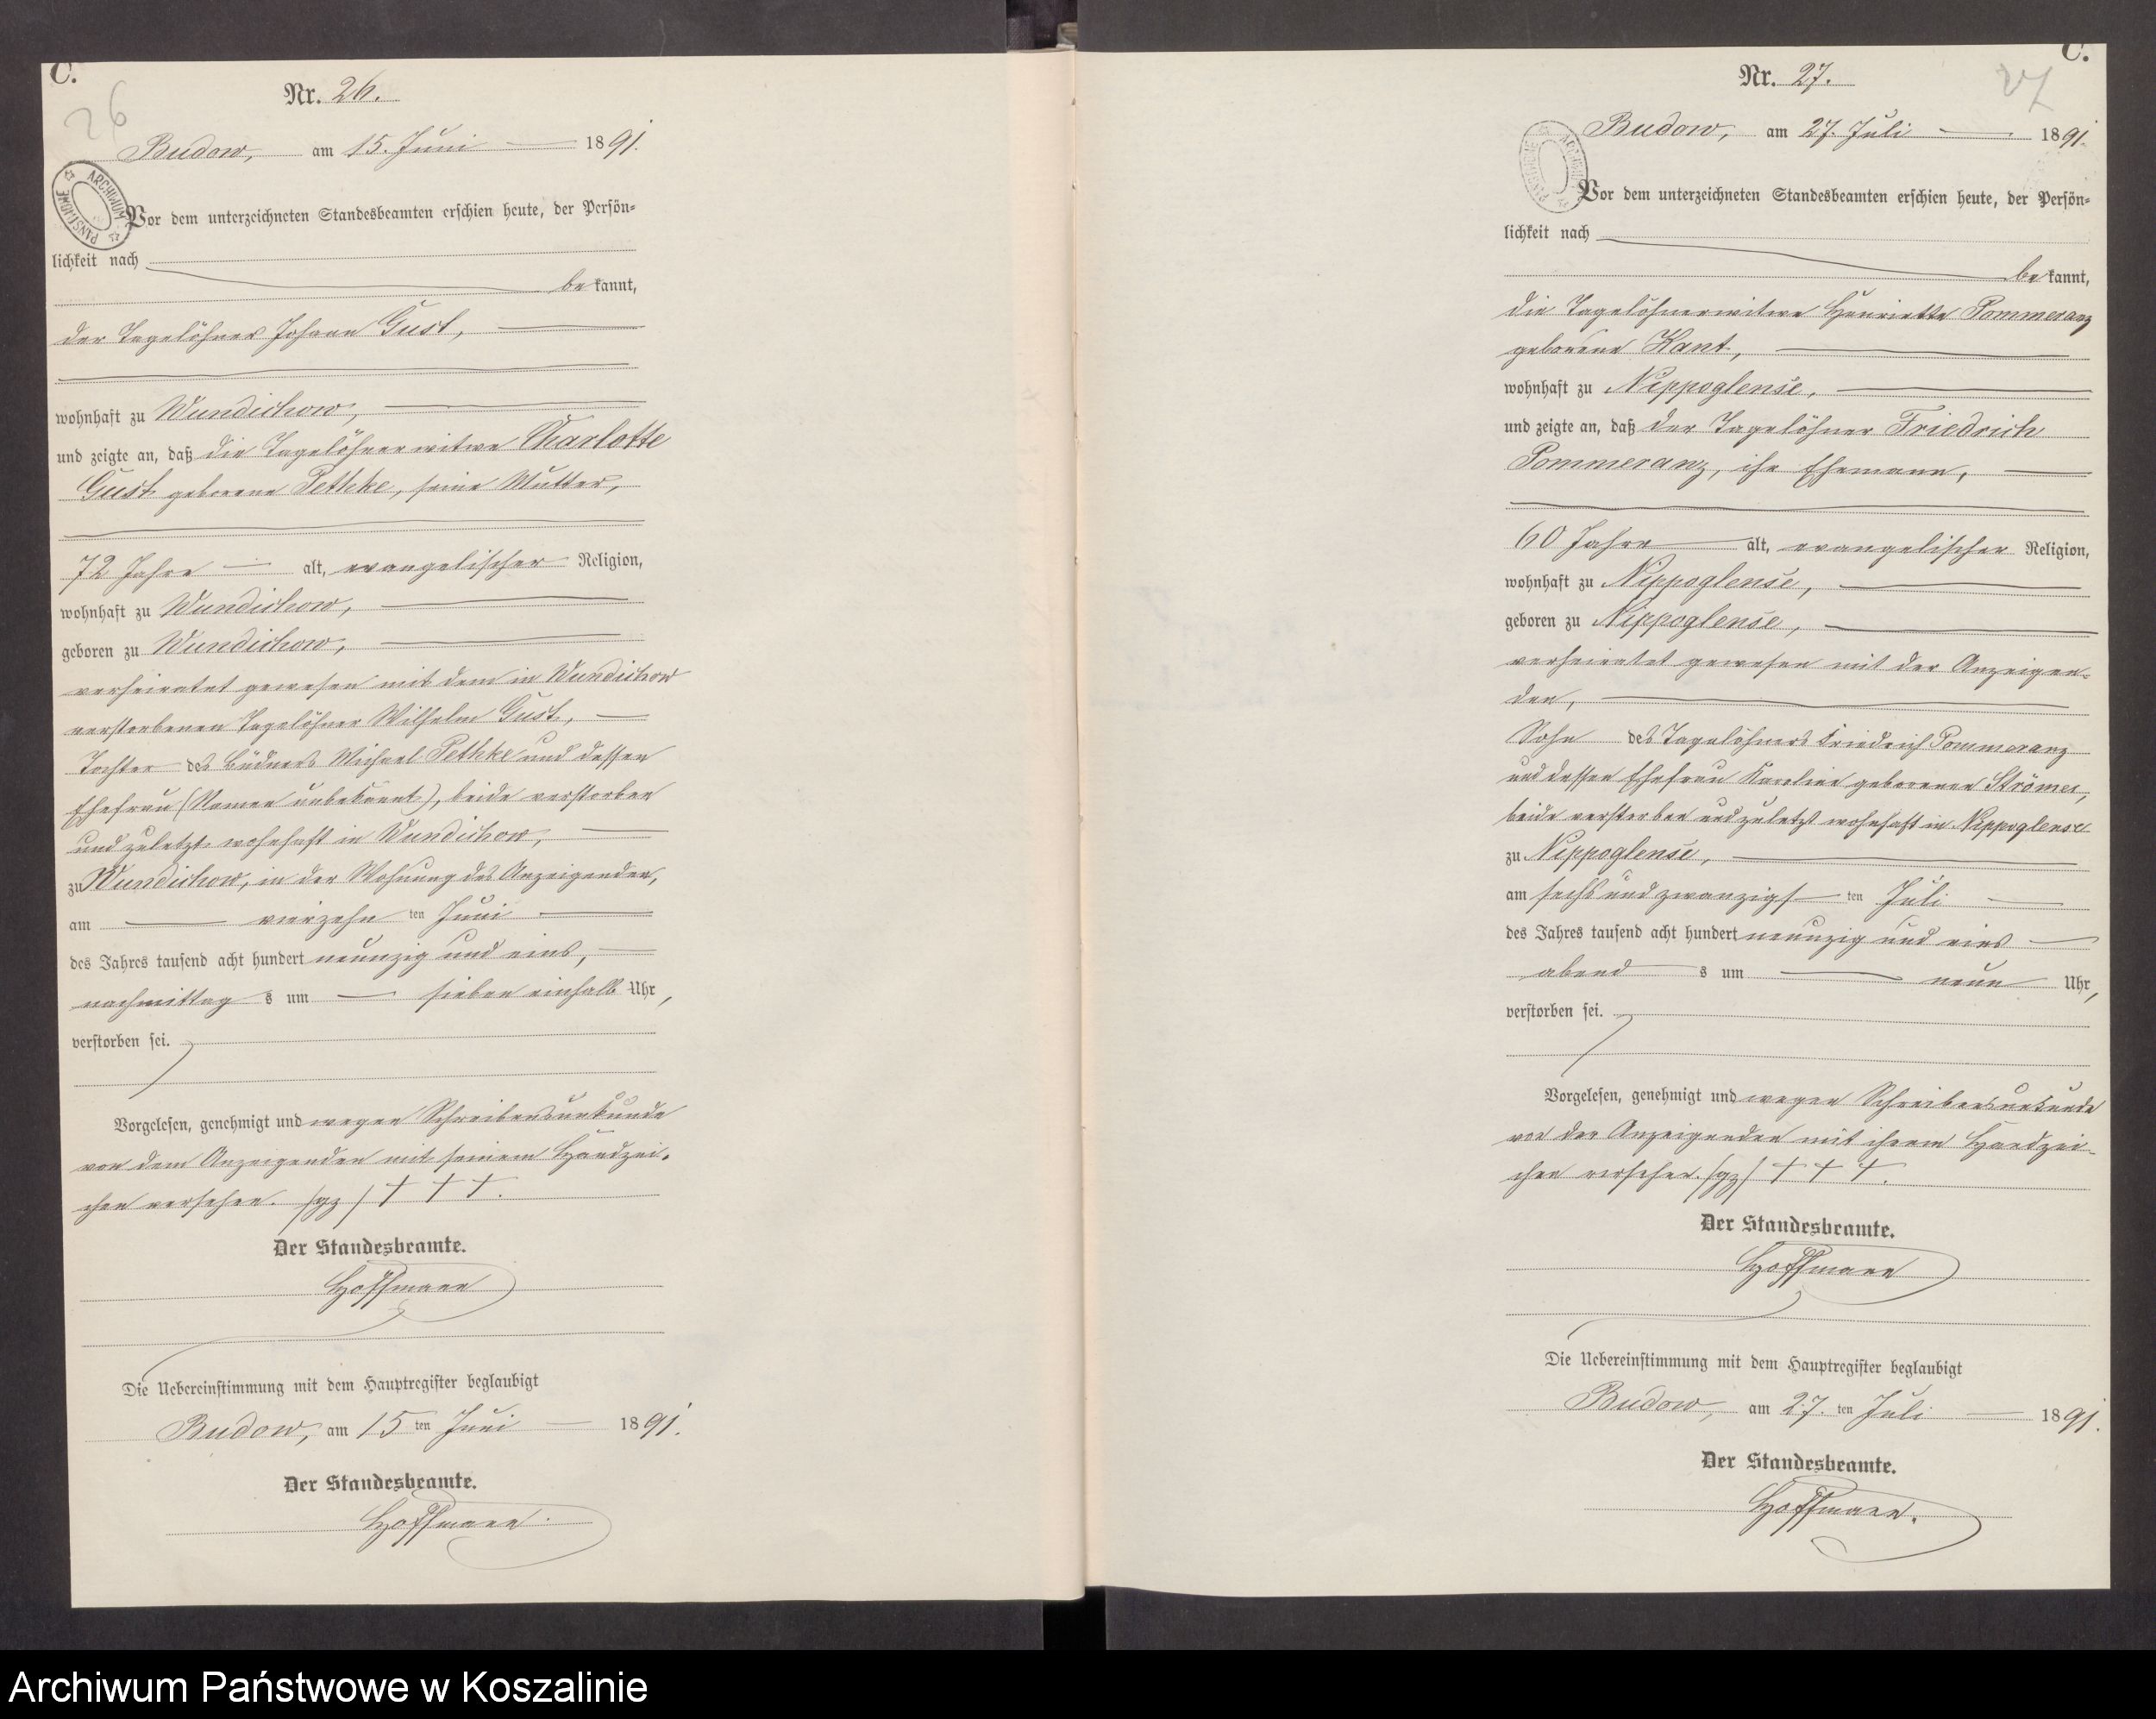 C.
26
Nr. 26.
Budow, am 15. Juni 1891.
ARCHIWUM PAŃSTWOWE
Vor dem unterzeichneten Standesbeamten erschien heute, der Persön-
lichkeit nach
bekannt,
der Tagelöhner Johann Gust,
wohnhaft zu Wundichow,
und zeigte an, daß die Tagelöhnerwitwe Charlotte
Gust geborene Pethke, seine Mutter,
72 Jahre alt, evangelischer Religion,
wohnhaft zu Wundichow,
geboren zu Wundichow,
verheiratet gewesen mit dem in Wundichow
verstorbenen Tagelöhner Wilhelm Gust,
Tochter des Büdners Michael Pethke und dessen
Ehefrau (Namen unbekannt), beide verstorben
und zuletzt wohnhaft in Wundichow,
zu Wundichow, in der Wohnung des Anzeigenden,
am vierzehnten Juni
des Jahres tausend acht hundert neunzig und eins,
nachmittags um sieben einhalb Uhr,
verstorben sei.
Vorgelesen, genehmigt und wegen Schreibensunkunde
von dem Anzeigenden mit seinem Handzei-
chen versehen. /gz/ † † †.
Der Standesbeamte.
Hoffmann
Die Uebereinstimmung mit dem Hauptregister beglaubigt
Budow, am 15ten Juni 1891.
Der Standesbeamte.
Hoffmann.
C.
27
Nr. 27.
Budow, am 27. Juli 1891.
ARCHIWUM PAŃSTWOWE
Vor dem unterzeichneten Standesbeamten erschien heute, der Persön-
lichkeit nach
bekannt,
die Tagelöhnerwitwe Henriette Pommeranz
geborene Kant,
wohnhaft zu Nippoglense,
und zeigte an, daß der Tagelöhner Friedrich
Pommeranz, ihr Ehemann,
60 Jahre alt, evangelischer Religion,
wohnhaft zu Nippoglense,
geboren zu Nippoglense,
verheiratet gewesen mit der Anzeigen-
den,
Sohn des Tagelöhners Friedrich Pommeranz
und dessen Ehefrau Karoline geborenen Strömer,
beide verstorben und zuletzt wohnhaft in Nippoglense
zu Nippoglense,
am sechs und zwanzigsten Juli
des Jahres tausend acht hundert neunzig und eins
abends um neun Uhr,
verstorben sei.
Vorgelesen, genehmigt und wegen Schreibensunkunde
von der Anzeigenden mit ihrem Handzei-
chen versehen. /gz/ † † †.
Der Standesbeamte.
Hoffmann
Die Uebereinstimmung mit dem Hauptregister beglaubigt
Budow, am 27.ten Juli 1891.
Der Standesbeamte.
Hoffmann.
Archiwum Państwowe w Koszalinie